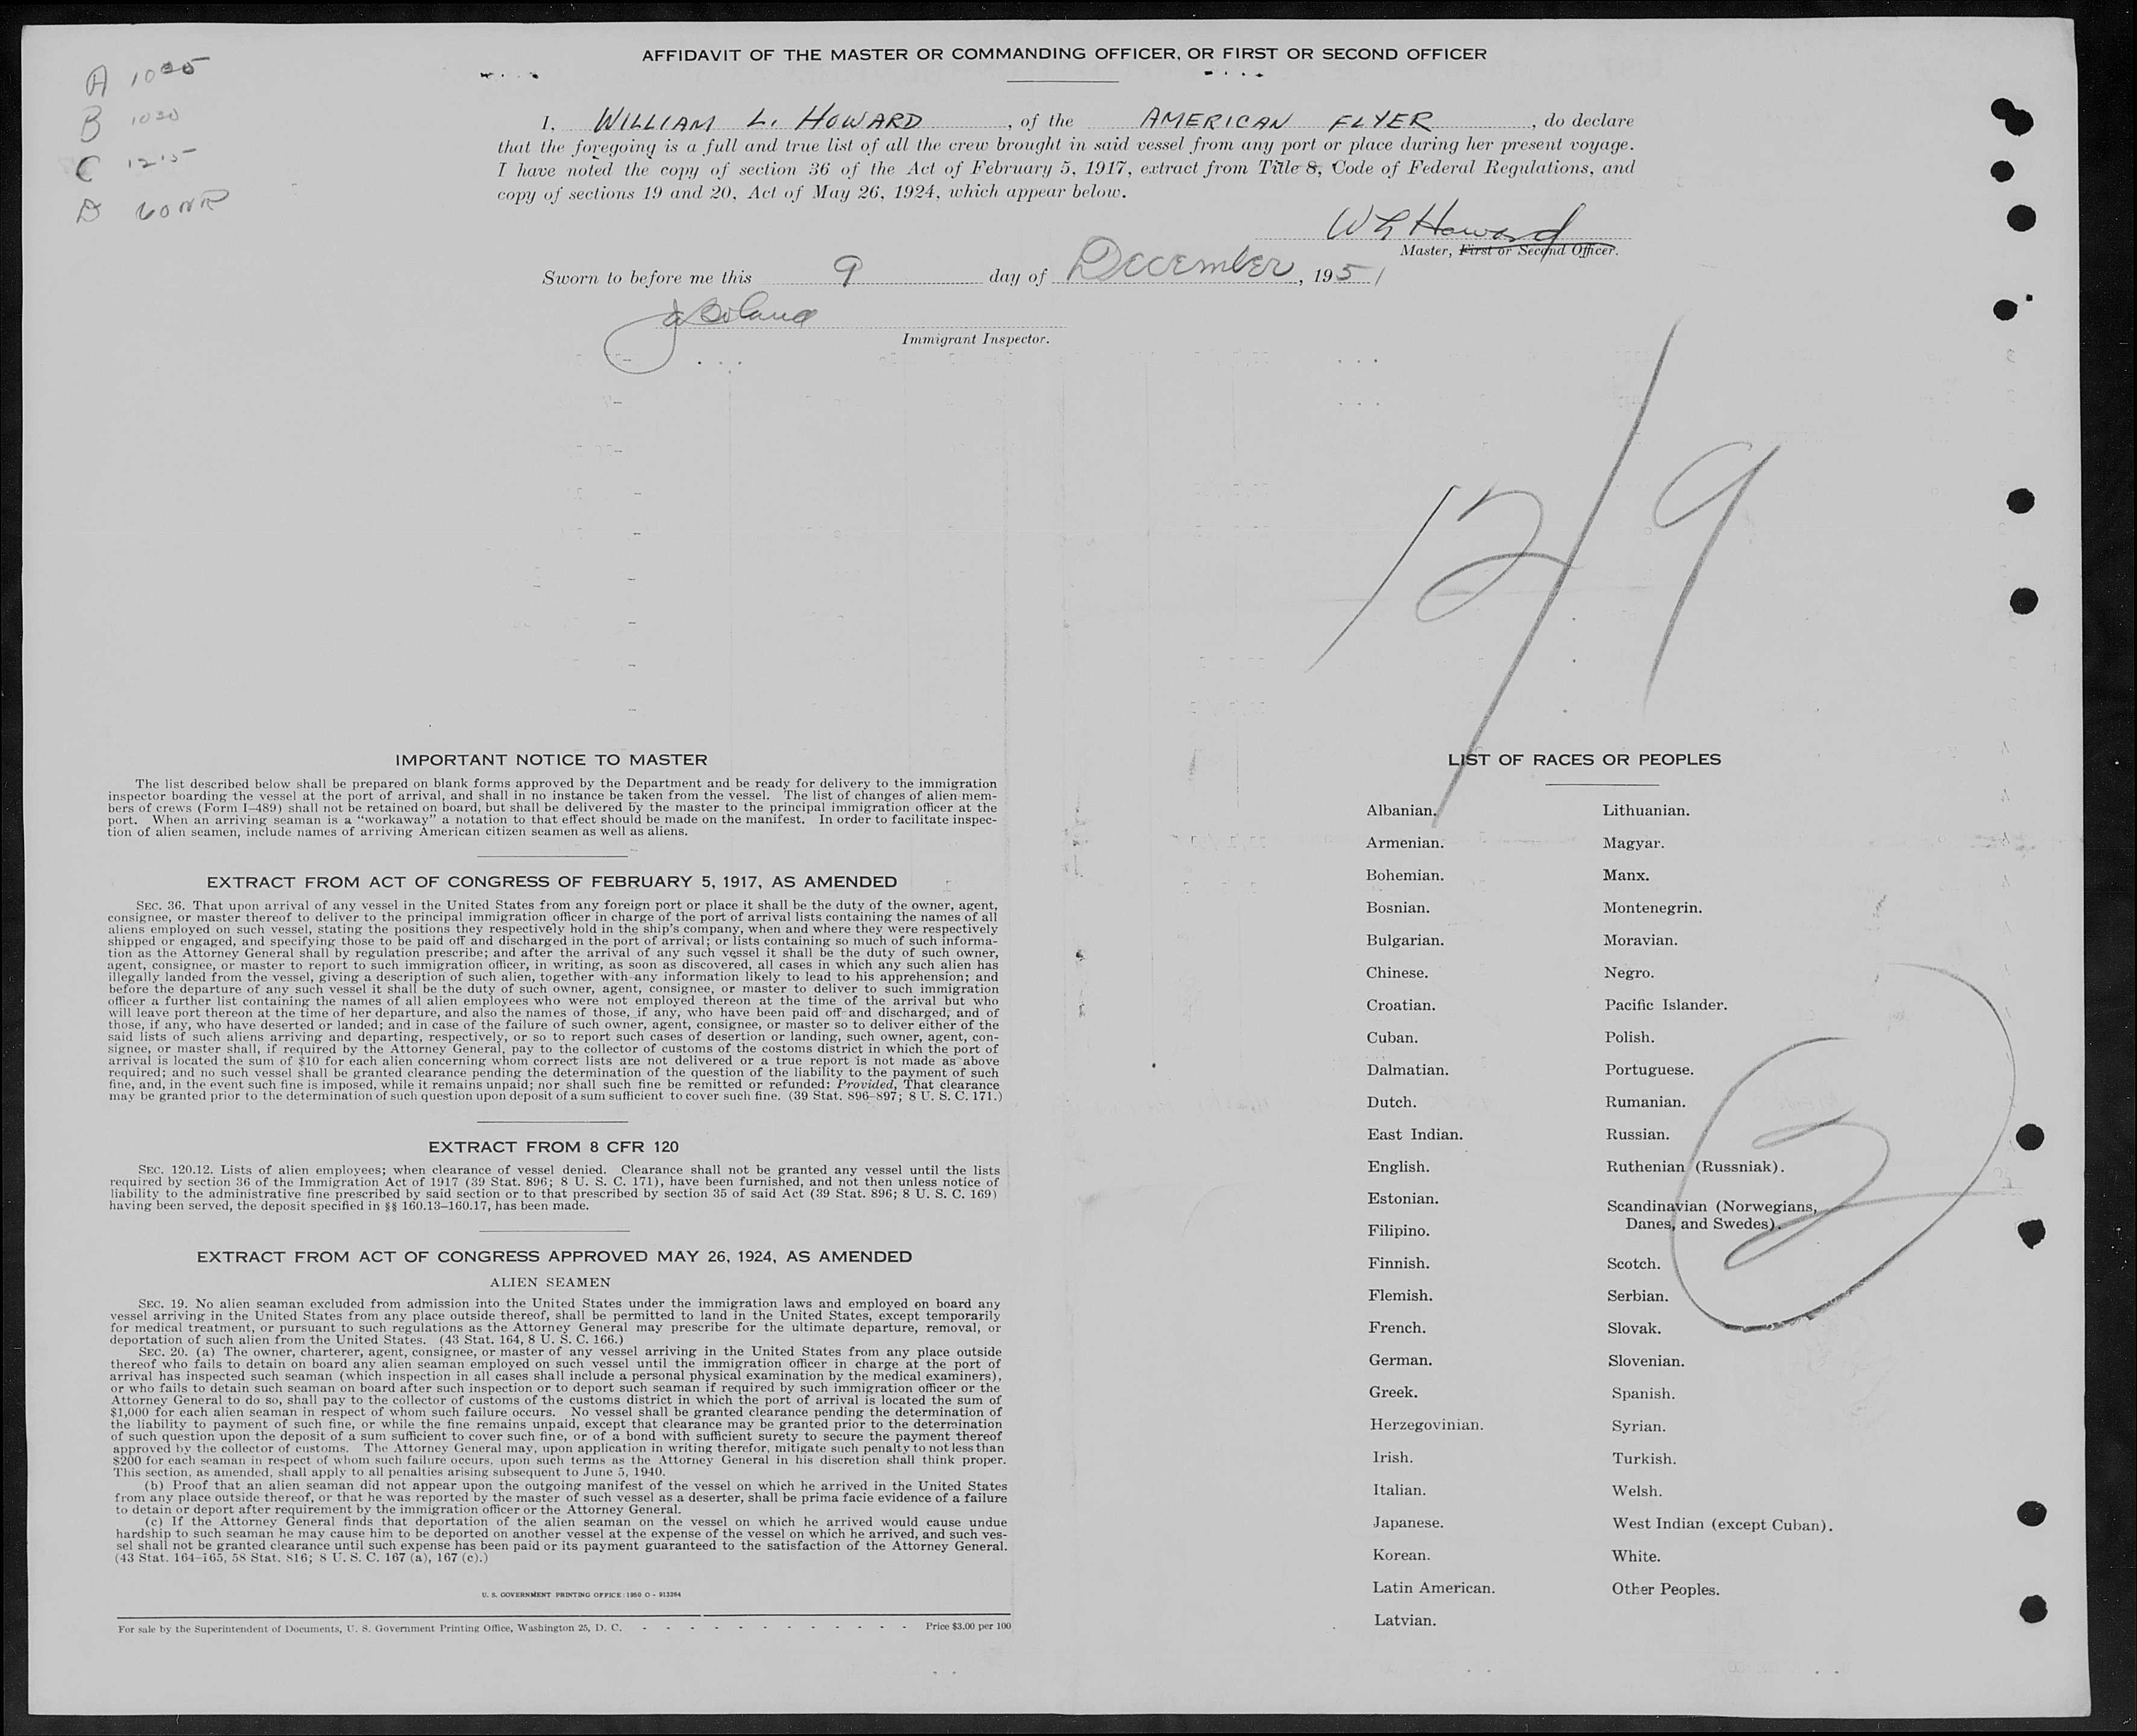 A 1025
B 1030
C 1215
D
AFFIDAVIT OF THE MASTER OR COMMANDING OFFICER, OR FIRST OR SECOND OFFICER
I, WILLIAM L. HOWARD, of the AMERICAN FLYER, do declare
that the foregoing is a full and true list of all the crew brought in said vessel from any port or place during her present voyage.
I have noted the copy of section 36 of the Act of February 5, 1917, extract from Title 8, Code of Federal Regulations, and
copy of sections 19 and 20, Act of May 26, 1924, which appear below.
W L Howard
Master, First or Second Officer.
Sworn to before me this 9 day of December, 1951
Immigrant Inspector.
12/9
IMPORTANT NOTICE TO MASTER
The list described below shall be prepared on blank forms approved by the Department and be ready for delivery to the immigration
inspector boarding the vessel at the port of arrival, and shall in no instance be taken from the vessel. The list of changes of alien mem-
bers of crews (Form I-489) shall not be retained on board, but shall be delivered by the master to the principal immigration officer at the
port. When an arriving seaman is a "workaway" a notation to that effect should be made on the manifest. In order to facilitate inspec-
tion of alien seamen, include names of arriving American citizen seamen as well as aliens.
EXTRACT FROM ACT OF CONGRESS OF FEBRUARY 5, 1917, AS AMENDED
SEC. 36. That upon arrival of any vessel in the United States from any foreign port or place it shall be the duty of the owner, agent,
consignee, or master thereof to deliver to the principal immigration officer in charge of the port of arrival lists containing the names of all
aliens employed on such vessel, stating the positions they respectively hold in the ship's company, when and where they were respectively
shipped or engaged, and specifying those to be paid off and discharged in the port of arrival; or lists containing so much of such informa-
tion as the Attorney General shall by regulation prescribe; and after the arrival of any such vessel it shall be the duty of such owner,
agent, consignee, or master to report to such immigration officer, in writing, as soon as discovered, all cases in which any such alien has
illegally landed from the vessel, giving a description of such alien, together with any information likely to lead to his apprehension; and
before the departure of any such vessel it shall be the duty of such owner, agent, consignee, or master to deliver to such immigration
officer a further list containing the names of all alien employees who were not employed thereon at the time of the arrival but who
will leave port thereon at the time of her departure, and also the names of those, if any, who have been paid off and discharged, and of
those, if any, who have deserted or landed; and in case of the failure of such owner, agent, consignee, or master so to deliver either of the
said lists of such aliens arriving and departing, respectively, or so to report such cases of desertion or landing, such owner, agent, con-
signee, or master shall, if required by the Attorney General, pay to the collector of customs of the costoms district in which the port of
arrival is located the sum of $10 for each alien concerning whom correct lists are not delivered or a true report is not made as above
required; and no such vessel shall be granted clearance pending the determination of the question of the liability to the payment of such
fine, and, in the event such fine is imposed, while it remains unpaid; nor shall such fine be remitted or refunded: Provided, That clearance
may be granted prior to the determination of such question upon deposit of a sum sufficient to cover such fine. (39 Stat. 896-897; 8 U. S. C. 171.)
EXTRACT FROM 8 CFR 120
SEC. 120.12. Lists of alien employees; when clearance of vessel denied. Clearance shall not be granted any vessel until the lists
required by section 36 of the Immigration Act of 1917 (39 Stat. 896; 8 U. S. C. 171), have been furnished, and not then unless notice of
liability to the administrative fine prescribed by said section or to that prescribed by section 35 of said Act (39 Stat. 896; 8 U. S. C. 169)
having been served, the deposit specified in §§ 160.13-160.17, has been made.
EXTRACT FROM ACT OF CONGRESS APPROVED MAY 26, 1924, AS AMENDED
ALIEN SEAMEN
SEC. 19. No alien seaman excluded from admission into the United States under the immigration laws and employed on board any
vessel arriving in the United States from any place outside thereof, shall be permitted to land in the United States, except temporarily
for medical treatment, or pursuant to such regulations as the Attorney General may prescribe for the ultimate departure, removal, or
deportation of such alien from the United States. (43 Stat. 164, 8 U. S. C. 166.)
SEC. 20. (a) The owner, charterer, agent, consignee, or master of any vessel arriving in the United States from any place outside
thereof who fails to detain on board any alien seaman employed on such vessel until the immigration officer in charge at the port of
arrival has inspected such seaman (which inspection in all cases shall include a personal physical examination by the medical examiners),
or who fails to detain such seaman on board after such inspection or to deport such seaman if required by such immigration officer or the
Attorney General to do so, shall pay to the collector of customs of the customs district in which the port of arrival is located the sum of
$1,000 for each alien seaman in respect of whom such failure occurs. No vessel shall be granted clearance pending the determination of
the liability to payment of such fine, or while the fine remains unpaid, except that clearance may be granted prior to the determination
of such question upon the deposit of a sum sufficient to cover such fine, or of a bond with sufficient surety to secure the payment thereof
approved by the collector of customs. The Attorney General may, upon application in writing therefor, mitigate such penalty to not less than
$200 for each seaman in respect of whom such failure occurs, upon such terms as the Attorney General in his discretion shall think proper.
This section, as amended, shall apply to all penalties arising subsequent to June 5, 1940.
(b) Proof that an alien seaman did not appear upon the outgoing manifest of the vessel on which he arrived in the United States
from any place outside thereof, or that he was reported by the master of such vessel as a deserter, shall be prima facie evidence of a failure
to detain or deport after requirement by the immigration officer or the Attorney General.
(c) If the Attorney General finds that deportation of the alien seaman on the vessel on which he arrived would cause undue
hardship to such seaman he may cause him to be deported on another vessel at the expense of the vessel on which he arrived, and such ves-
sel shall not be granted clearance until such expense has been paid or its payment guaranteed to the satisfaction of the Attorney General.
(43 Stat. 164-165, 58 Stat. 816; 8 U. S. C. 167 (a), 167 (c).)
U. S. GOVERNMENT PRINTING OFFICE : 1950 O - 913264
For sale by the Superintendent of Documents, U. S. Government Printing Office, Washington 25, D. C. - - - - - - - - - - - - Price $3.00 per 100
LIST OF RACES OR PEOPLES
Albanian.
Armenian.
Bohemian.
Bosnian.
Bulgarian.
Chinese.
Croatian.
Cuban.
Dalmatian.
Dutch.
East Indian.
English.
Estonian.
Filipino.
Finnish.
Flemish.
French.
German.
Greek.
Herzegovinian.
Irish.
Italian.
Japanese.
Korean.
Latin American.
Latvian.
Lithuanian.
Magyar.
Manx.
Montenegrin.
Moravian.
Negro.
Pacific Islander.
Polish.
Portuguese.
Rumanian.
Russian.
Ruthenian (Russniak).
Scandinavian (Norwegians,
Danes, and Swedes).
Scotch.
Serbian.
Slovak.
Slovenian.
Spanish.
Syrian.
Turkish.
Welsh.
West Indian (except Cuban).
White.
Other Peoples.
2